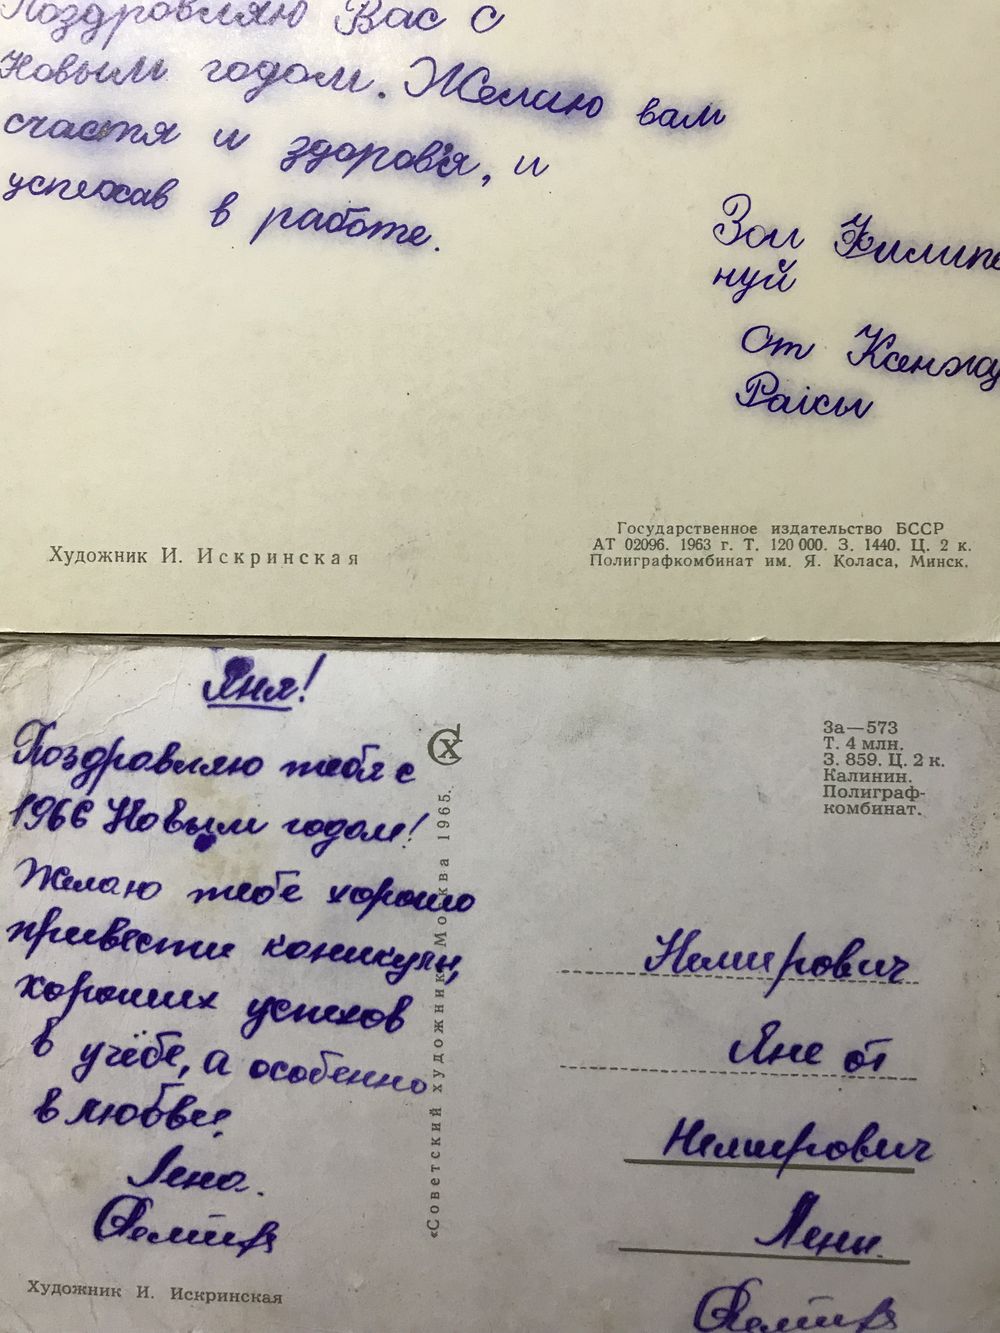 Поздровляю Вас с
Новым годом. Желаю вам
счастя и здоровʼя, и
успехав в работе.
Зои
нуй
от
Раісы
Художник И. Искринская
Государственное издательство БССР
АТ 02096. 1963 г. Т. 120 000. З. 1440. Ц. 2 к.
Полиграфкомбинат им. Я. Коласа, Минск.
Яня!
Поздровляю тебя с
1966 Новым годом!
Желаю тебе хорошо
привести коникулы,
хороших успехов
в учёбе, а особенно
в любви.
Лена.
СХ
«Советский художник» Москва 1965.
За—573
Т. 4 млн.
З. 859. Ц. 2 к.
Калинин.
Полиграф-
комбинат.
Немирович
Яне от
Немирович
Лены.
Художник И. Искринская